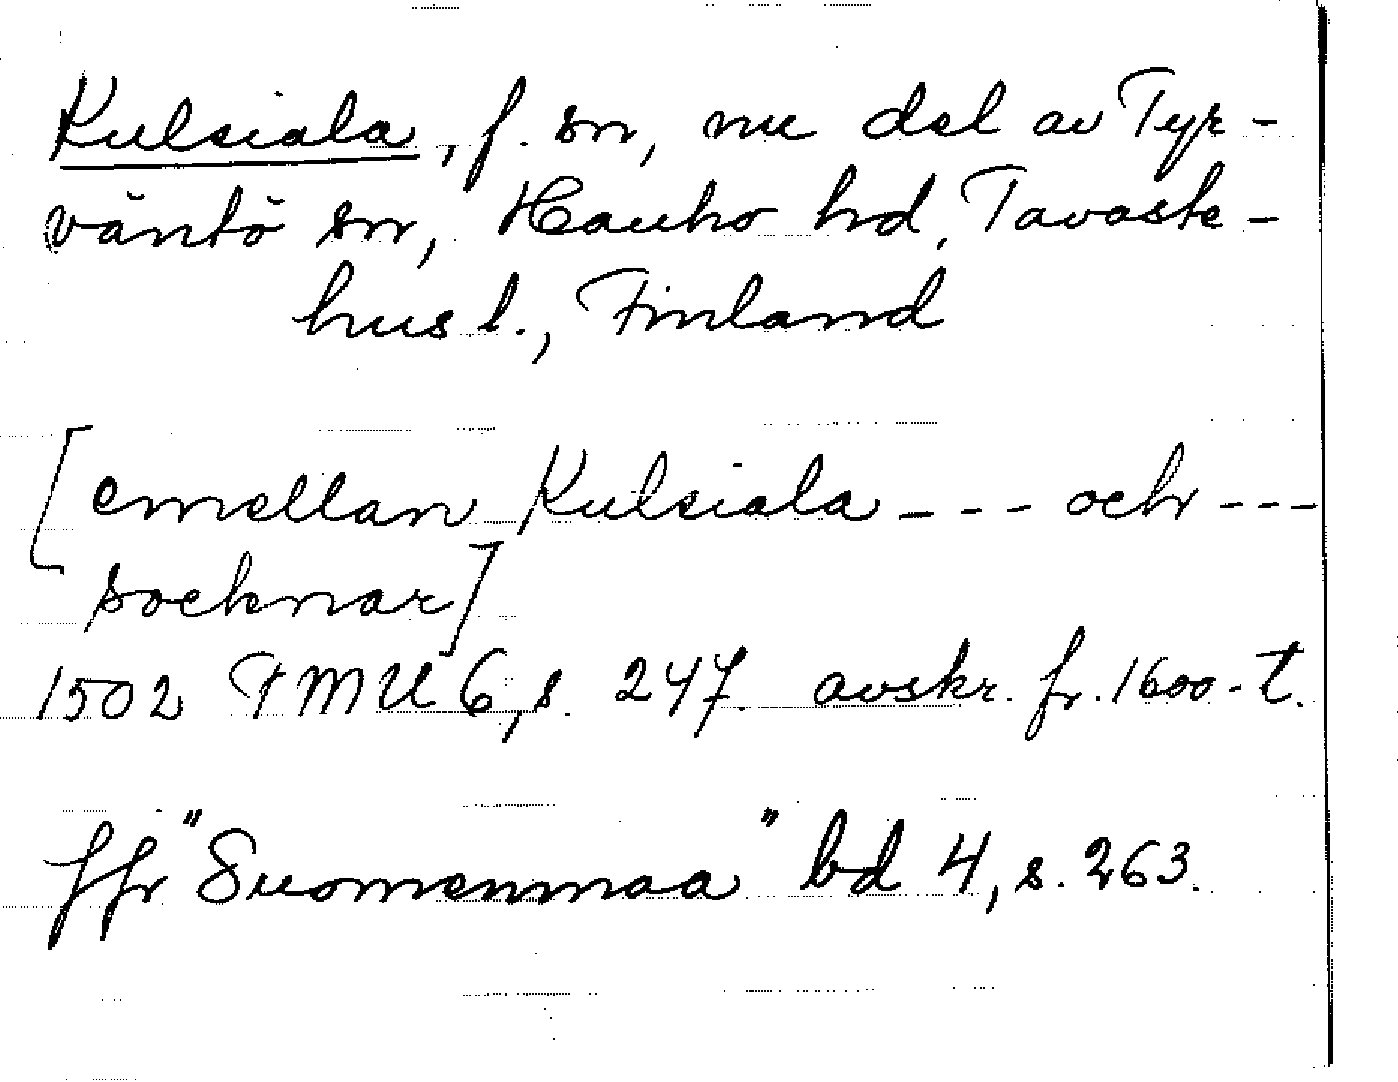 Kulsiala, f. sn, nu del av Tyr-
väntö sn, Hauho hd, Tavaste-
hus l., Finland
[emellan Kulsiala --- och ---
socknar]
1502 FMU 6, s. 247. avskr. fr. 1600-t.
Jfr "Suomenmaa" bd 4, s. 263.